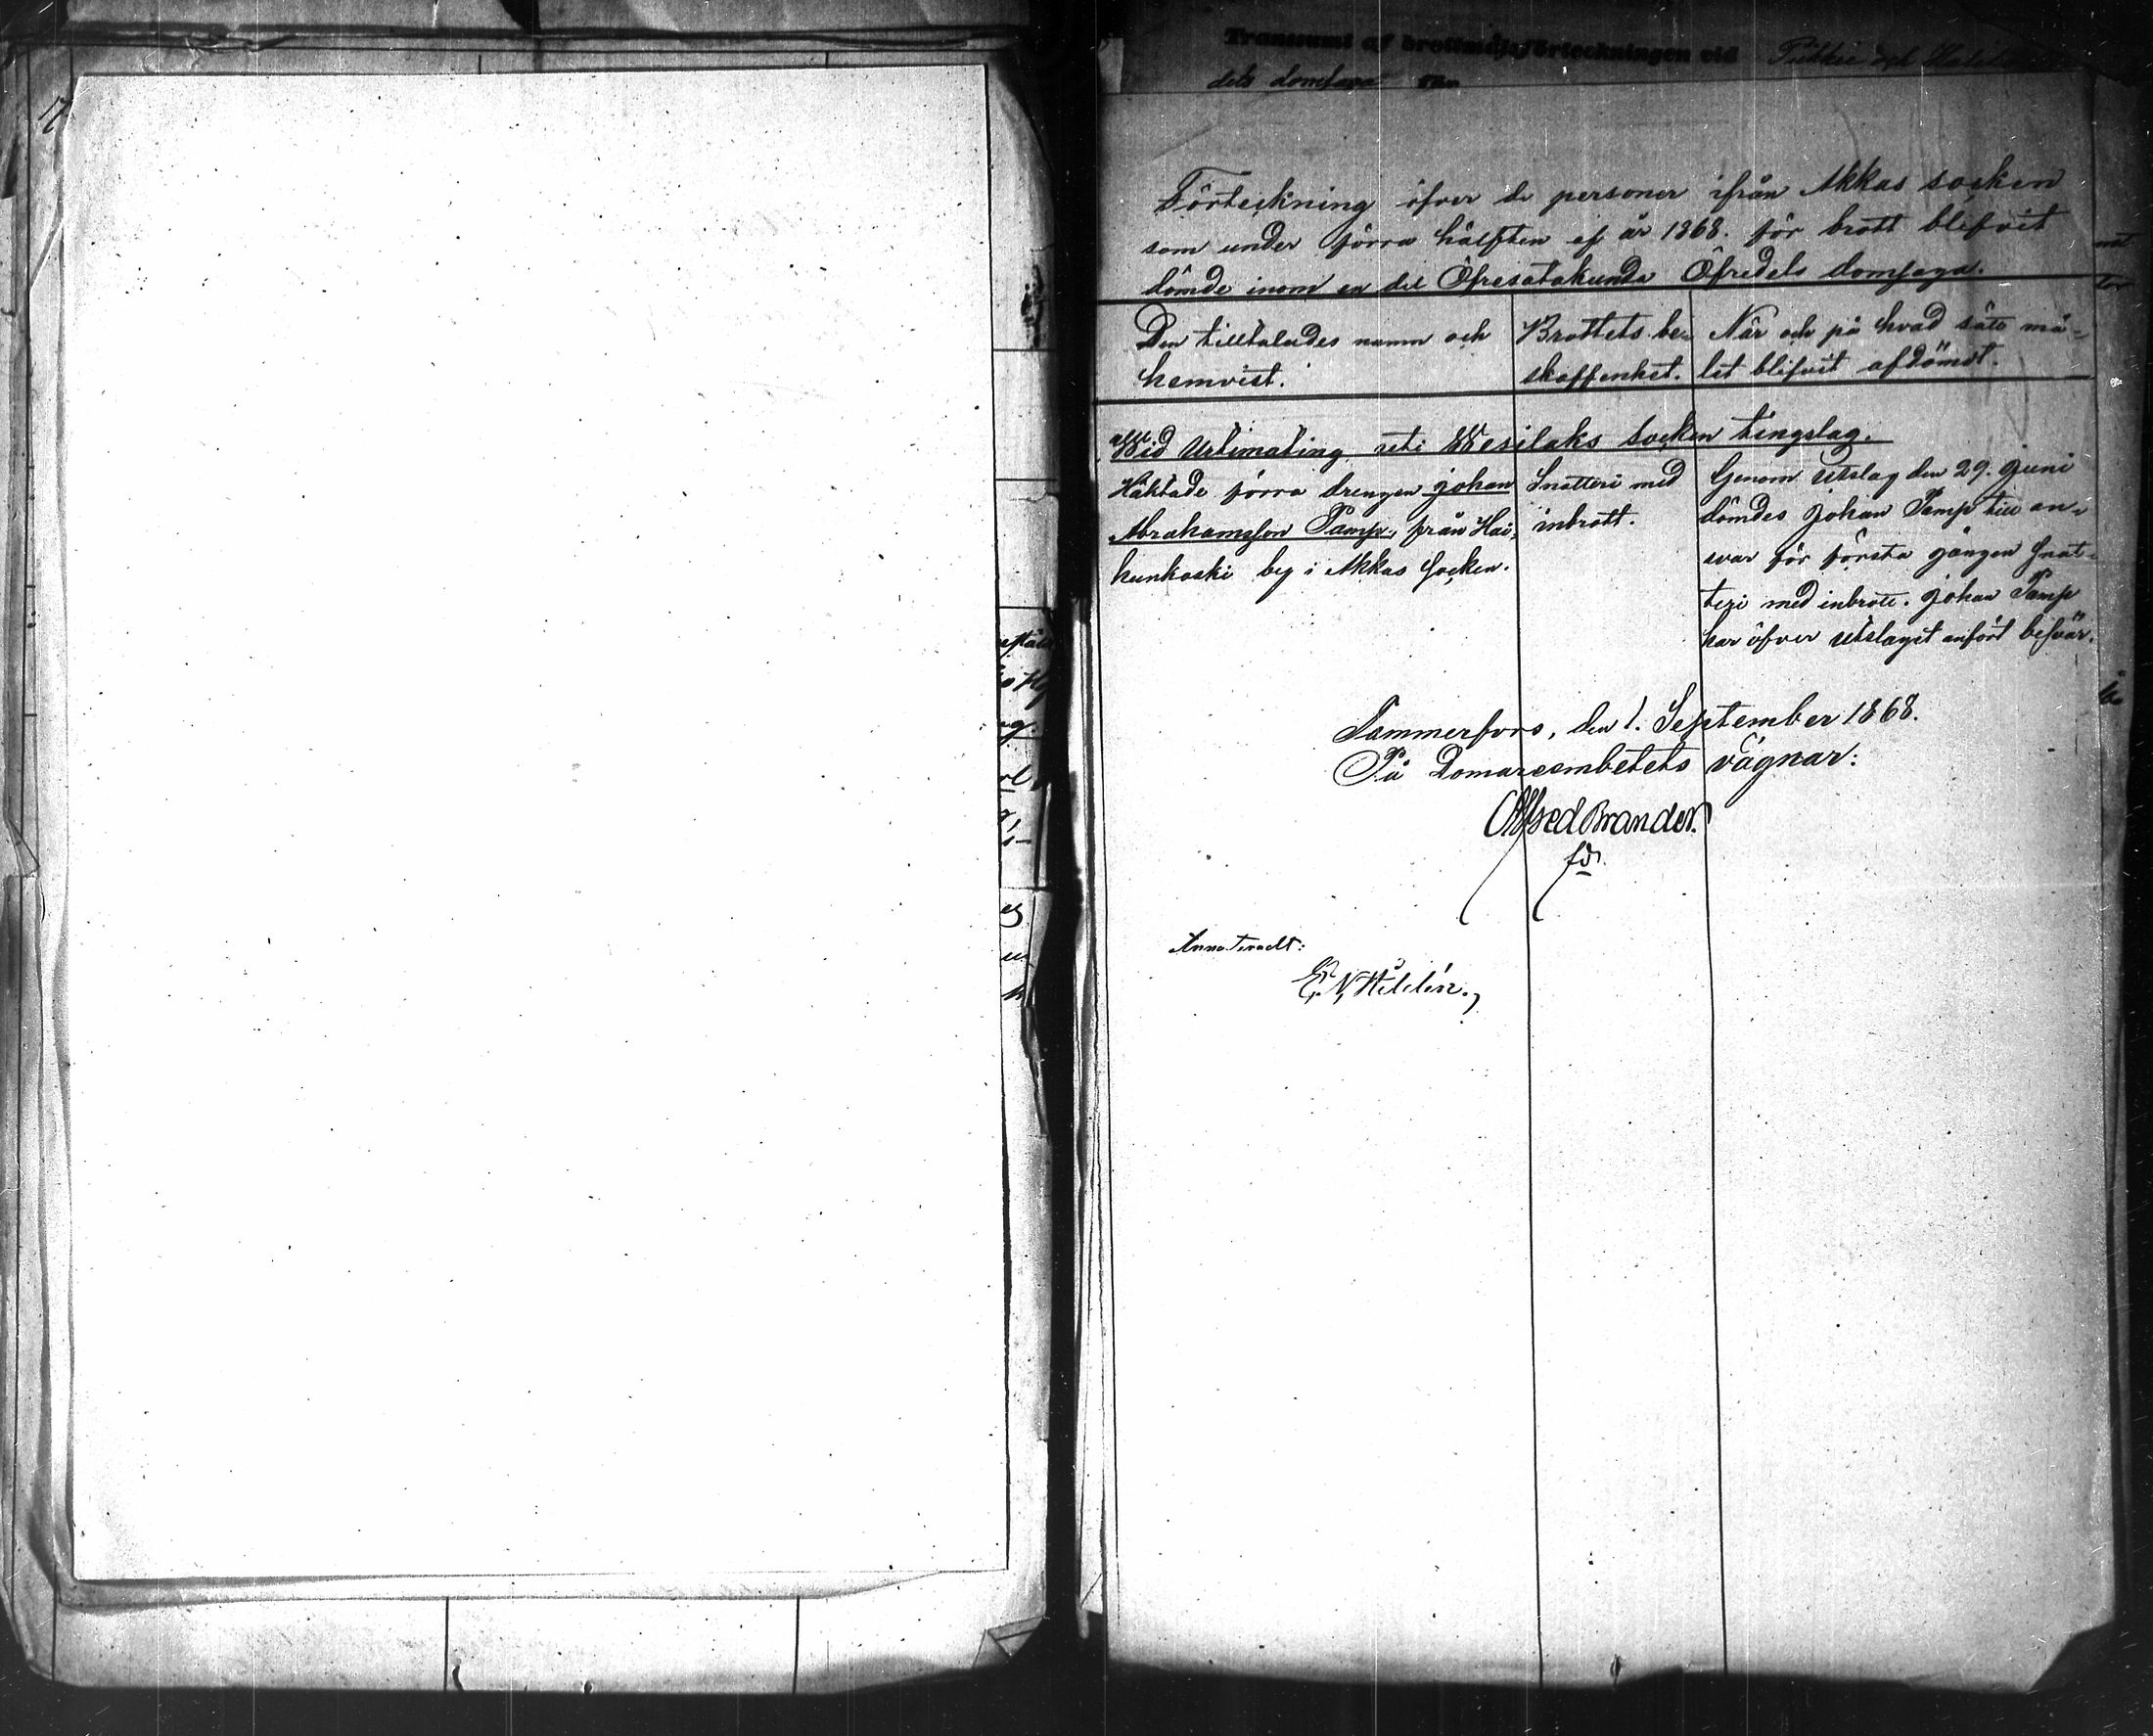 Transsumt af brottmålsförteckningen vid Pikkie och Halik
dels domsaga för
Förteckning öfver de personer ifrån Akkas socken
som under förra hälften af år 1868. för brott blifvit
dömde inom en del Öfresatakunda Öfredels domsaga.
Den tilltalades namn och
hemvist.
Brottets be-
skaffenhet.
När och på hvad sätt må-
let blifvit afdömdt.
Wid Urtimating uti Wesilaks socken tingslag.
Häktade förra drengen Johan
Abrahamsson Pamp, från Hai-
hunkoski by i Akkas socken.
Snatteri med
inbrott.
Genom Utslag den 29. Juni
dömdes Johan Pamp till an-
svar för första gången snat-
teri med inbrott. Johan Pamp
har öfver utslaget anfört besvär.
Tammerfors, den 1. September 1868.
På Domareembetets vägnar:
Alfred Brander.
fd.
Annoteradt:
E. N. Hildén.